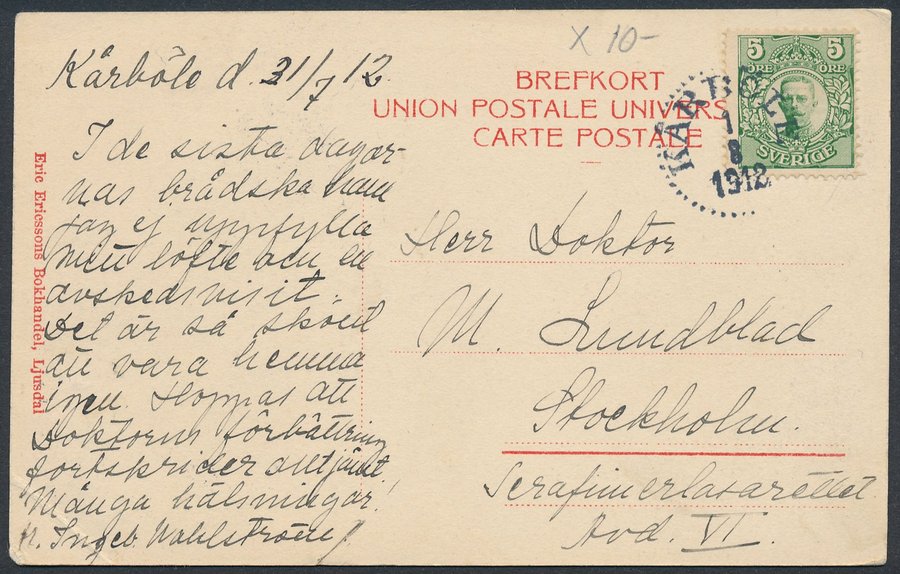 X 10-
Kårböle d. 31/7 12.
BREFKORT
UNION POSTALE UNIVERS
CARTE POSTALE
5 5
ÖRE ÖRE
SVERIGE
KÅRBÖLE
1
8
1912
I de sista dagar-
nas brådska kan
jag ej uppfylla
mitt löfte om en
avskedsvisit.
Det är så skönt
att vara hemma
igen. Hoppas att
Doktorns förbättring
fortskrider alltjämt.
Många hälsningar!
Ingeb. Wahlström
Herr Doktor
M. Lundblad
Stockholm.
Serafimerlasarettet
Avd. VI.
Eric Ericssons Bokhandel, Ljusdal